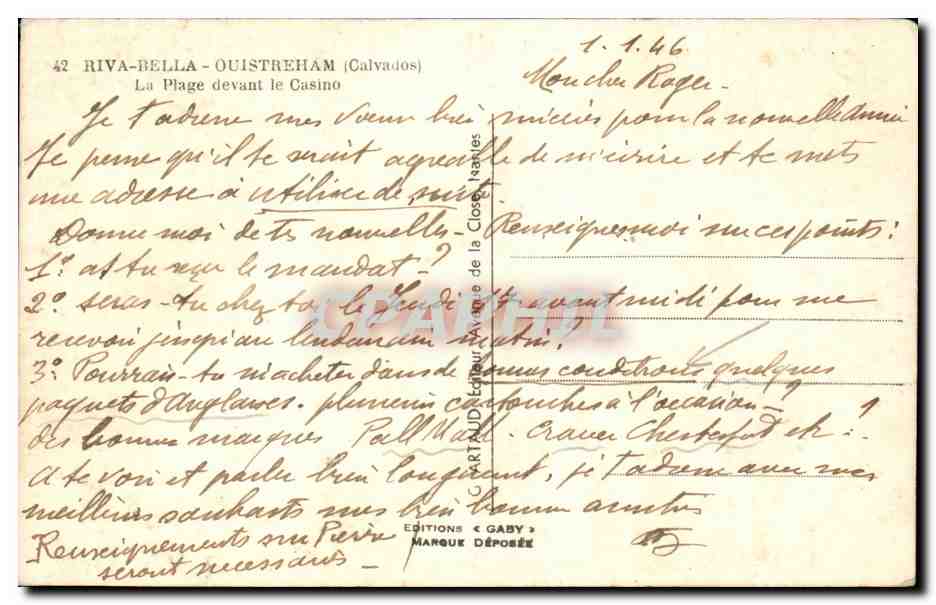 1.1.46
42 RIVA-BELLA - OUISTREHAM (Calvados)
La Plage devant le Casino
Mon cher Roger -
Je t'adresse mes vœux bien sincères pour la nouvelle année
Je pense qu'il te serait agréable de m'écrire et te mets
une adresse à utiliser de suite
Donne moi de tes nouvelles - Renseignes moi sur ces points :
1º as tu reçu le mandat - ?
2º seras-tu chez toi le Jeudi 17 avant midi pour me
recevoir jusqu'au lendemain matin ?
3º Pourrais-tu m'acheter dans de bonnes conditions quelques
paquets d'Anglaises - plusieurs cartouches à l'occasion - ? ?
des bonnes marques Pall Mall - Craven Chesterfield etc :
A te voir et parler bien longuement, je t'adresse avec mes
meilleurs souhaits mes bien bonnes amitiés
Renseignements sur Pierre
seront nécessaires -
EDITIONS « GABY »
MARQUE DÉPOSÉE
G. ARTAUD, Éditeur, Avenue de la Close, Nantes
CPARHIL